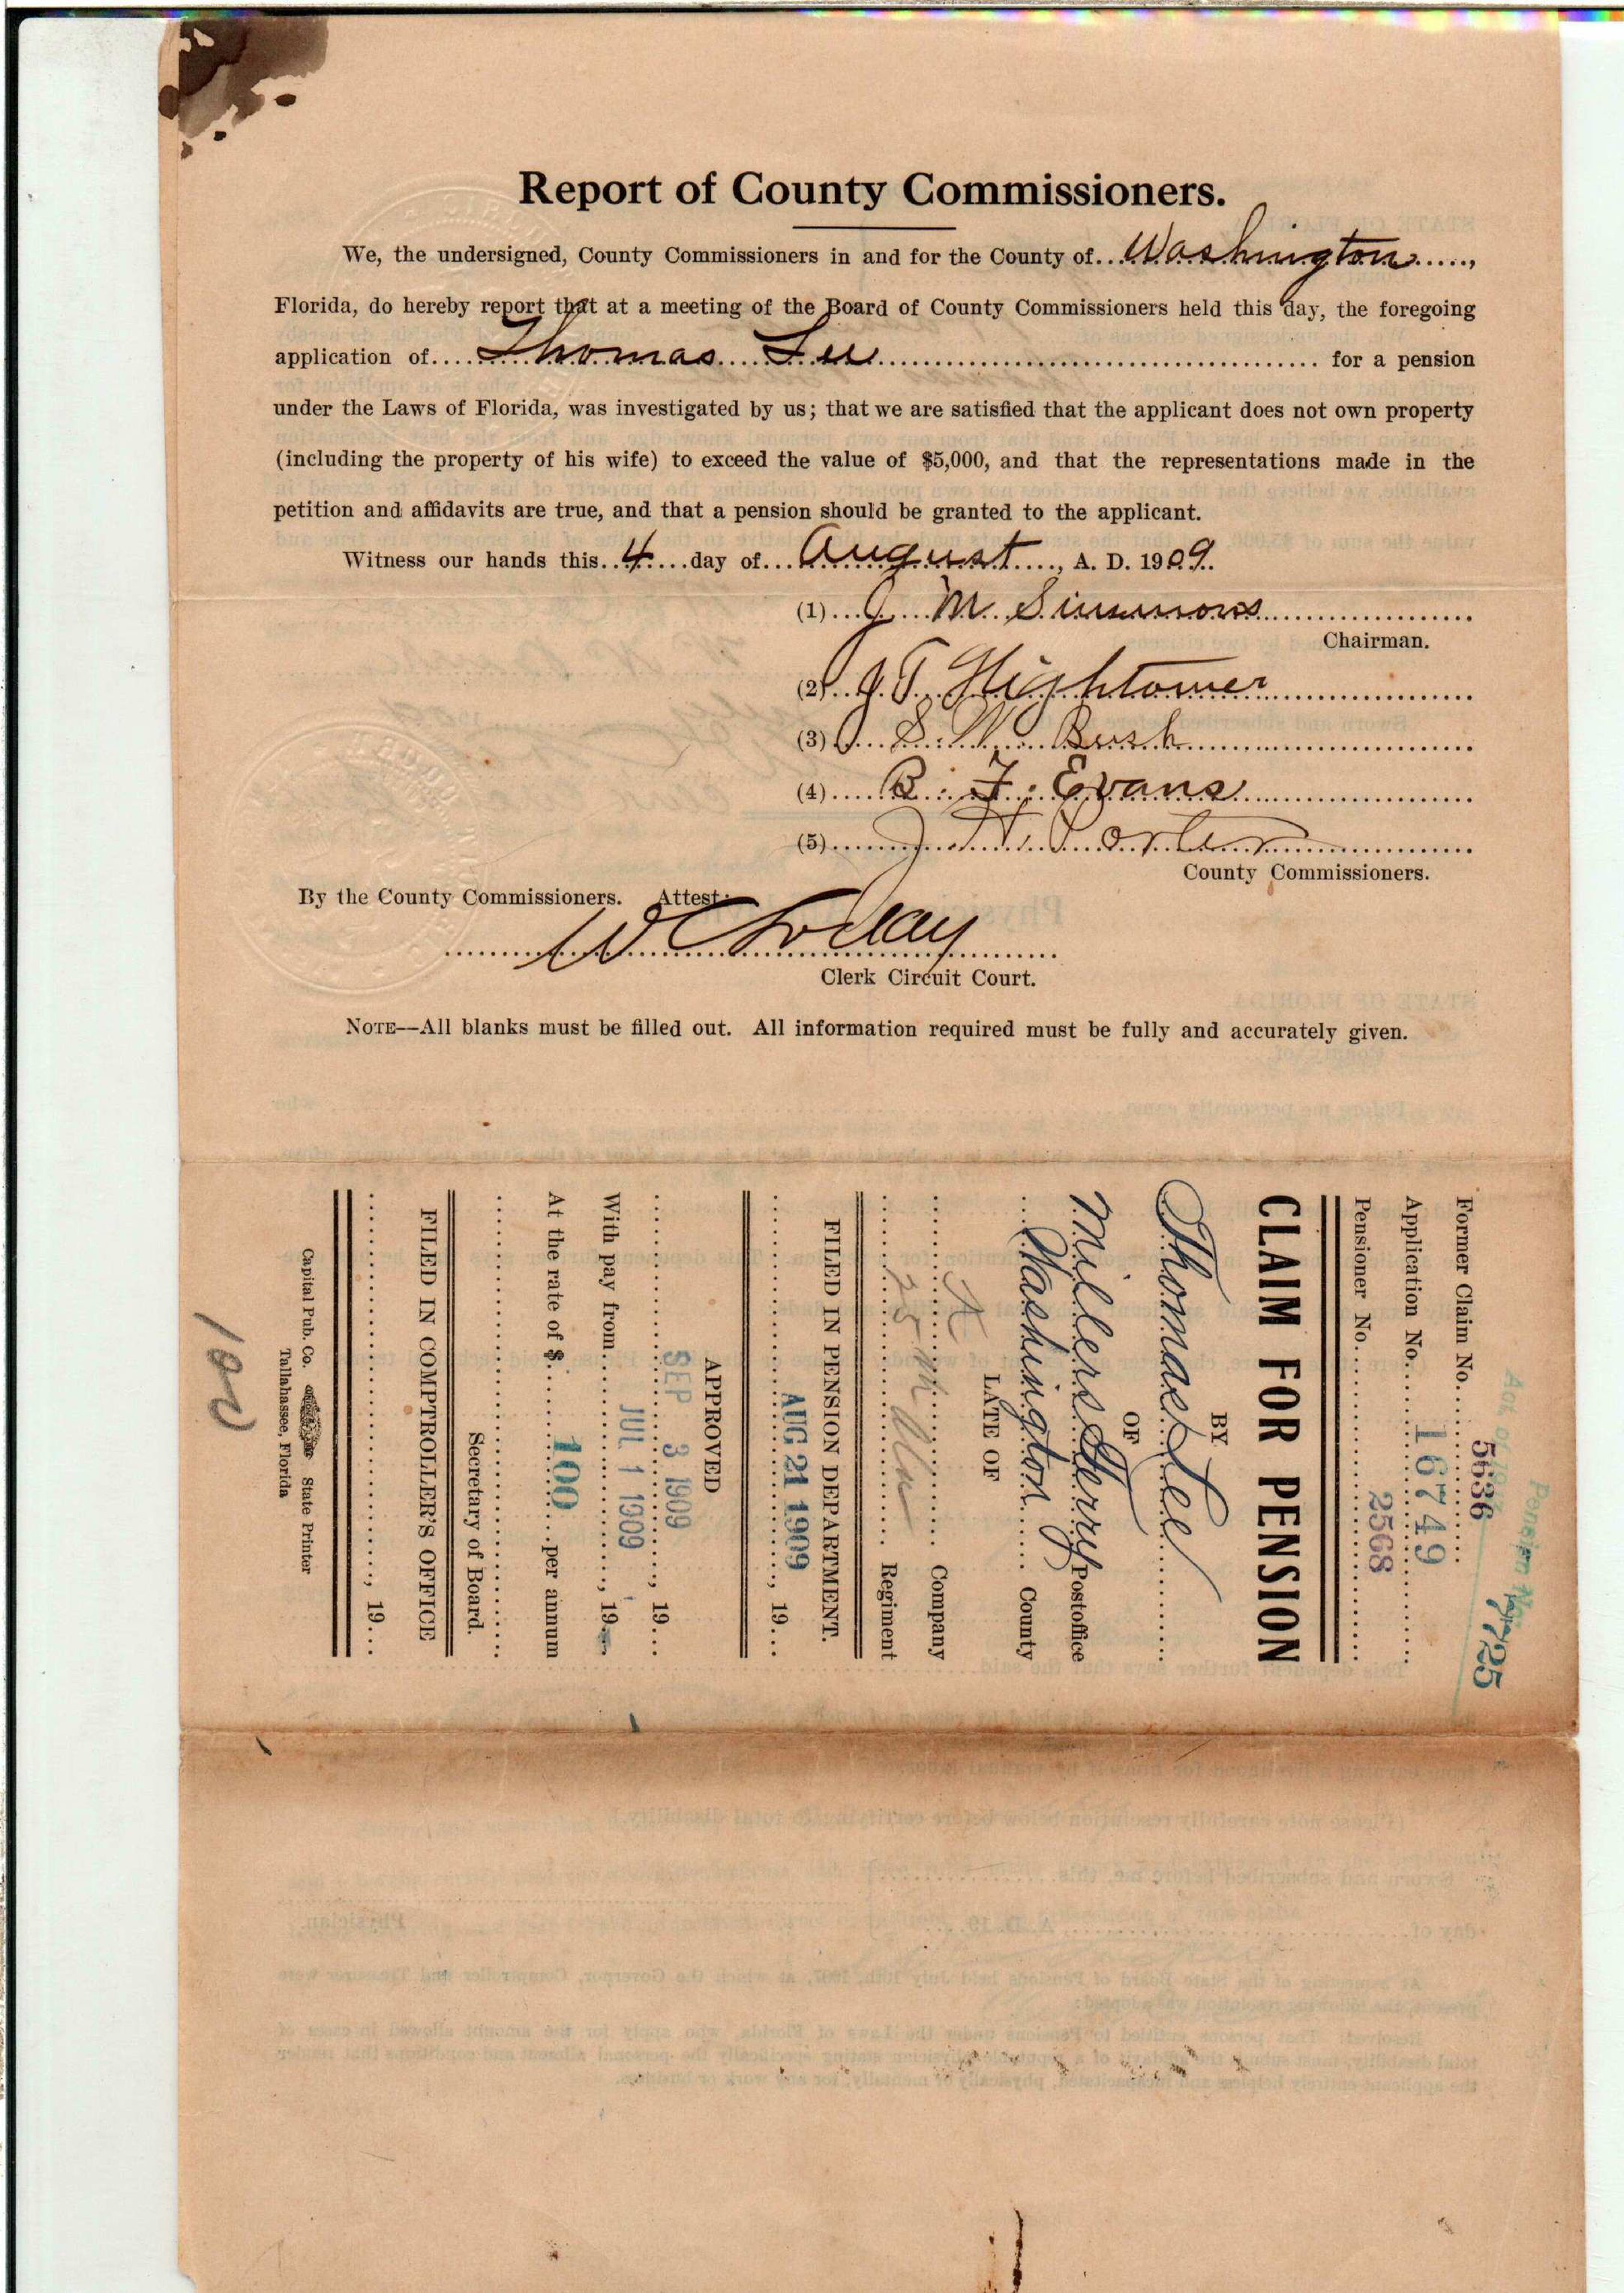 Report of County Commissioners.
We, the undersigned, County Commissioners in and for the County of Washington,
Florida, do hereby report that at a meeting of the Board of County Commissioners held this day, the foregoing
application of Thomas Lee for a pension
under the Laws of Florida, was investigated by us; that we are satisfied that the applicant does not own property
(including the property of his wife) to exceed the value of $5,000, and that the representations made in the
petition and affidavits are true, and that a pension should be granted to the applicant.
Witness our hands this 4 day of August, A. D. 1909.
(1) J M Simmons
Chairman.
(2) J. T. Hightower
(3) S. W. Bush
(4) B. F. Evans
(5) J. H. Porter
County Commissioners.
By the County Commissioners. Attest:
W C Lockey
Clerk Circuit Court.
NOTE—All blanks must be filled out. All information required must be fully and accurately given.
Act of
Pension No. 7725
Former Claim No. 5636
Application No. 16749
Pensioner No. 2568
CLAIM FOR PENSION
BY
Thomas Lee
OF
Millers Ferry Postoffice
Washington County
LATE OF
A Company
Regiment
FILED IN PENSION DEPARTMENT.
AUG 21 1909, 19
APPROVED
SEP 3 1909, 19
With pay from JUL 1 1909, 19
At the rate of $ 100 per annum
Secretary of Board.
FILED IN COMPTROLLER'S OFFICE
, 19
Capital Pub. Co. State Printer
Tallahassee, Florida